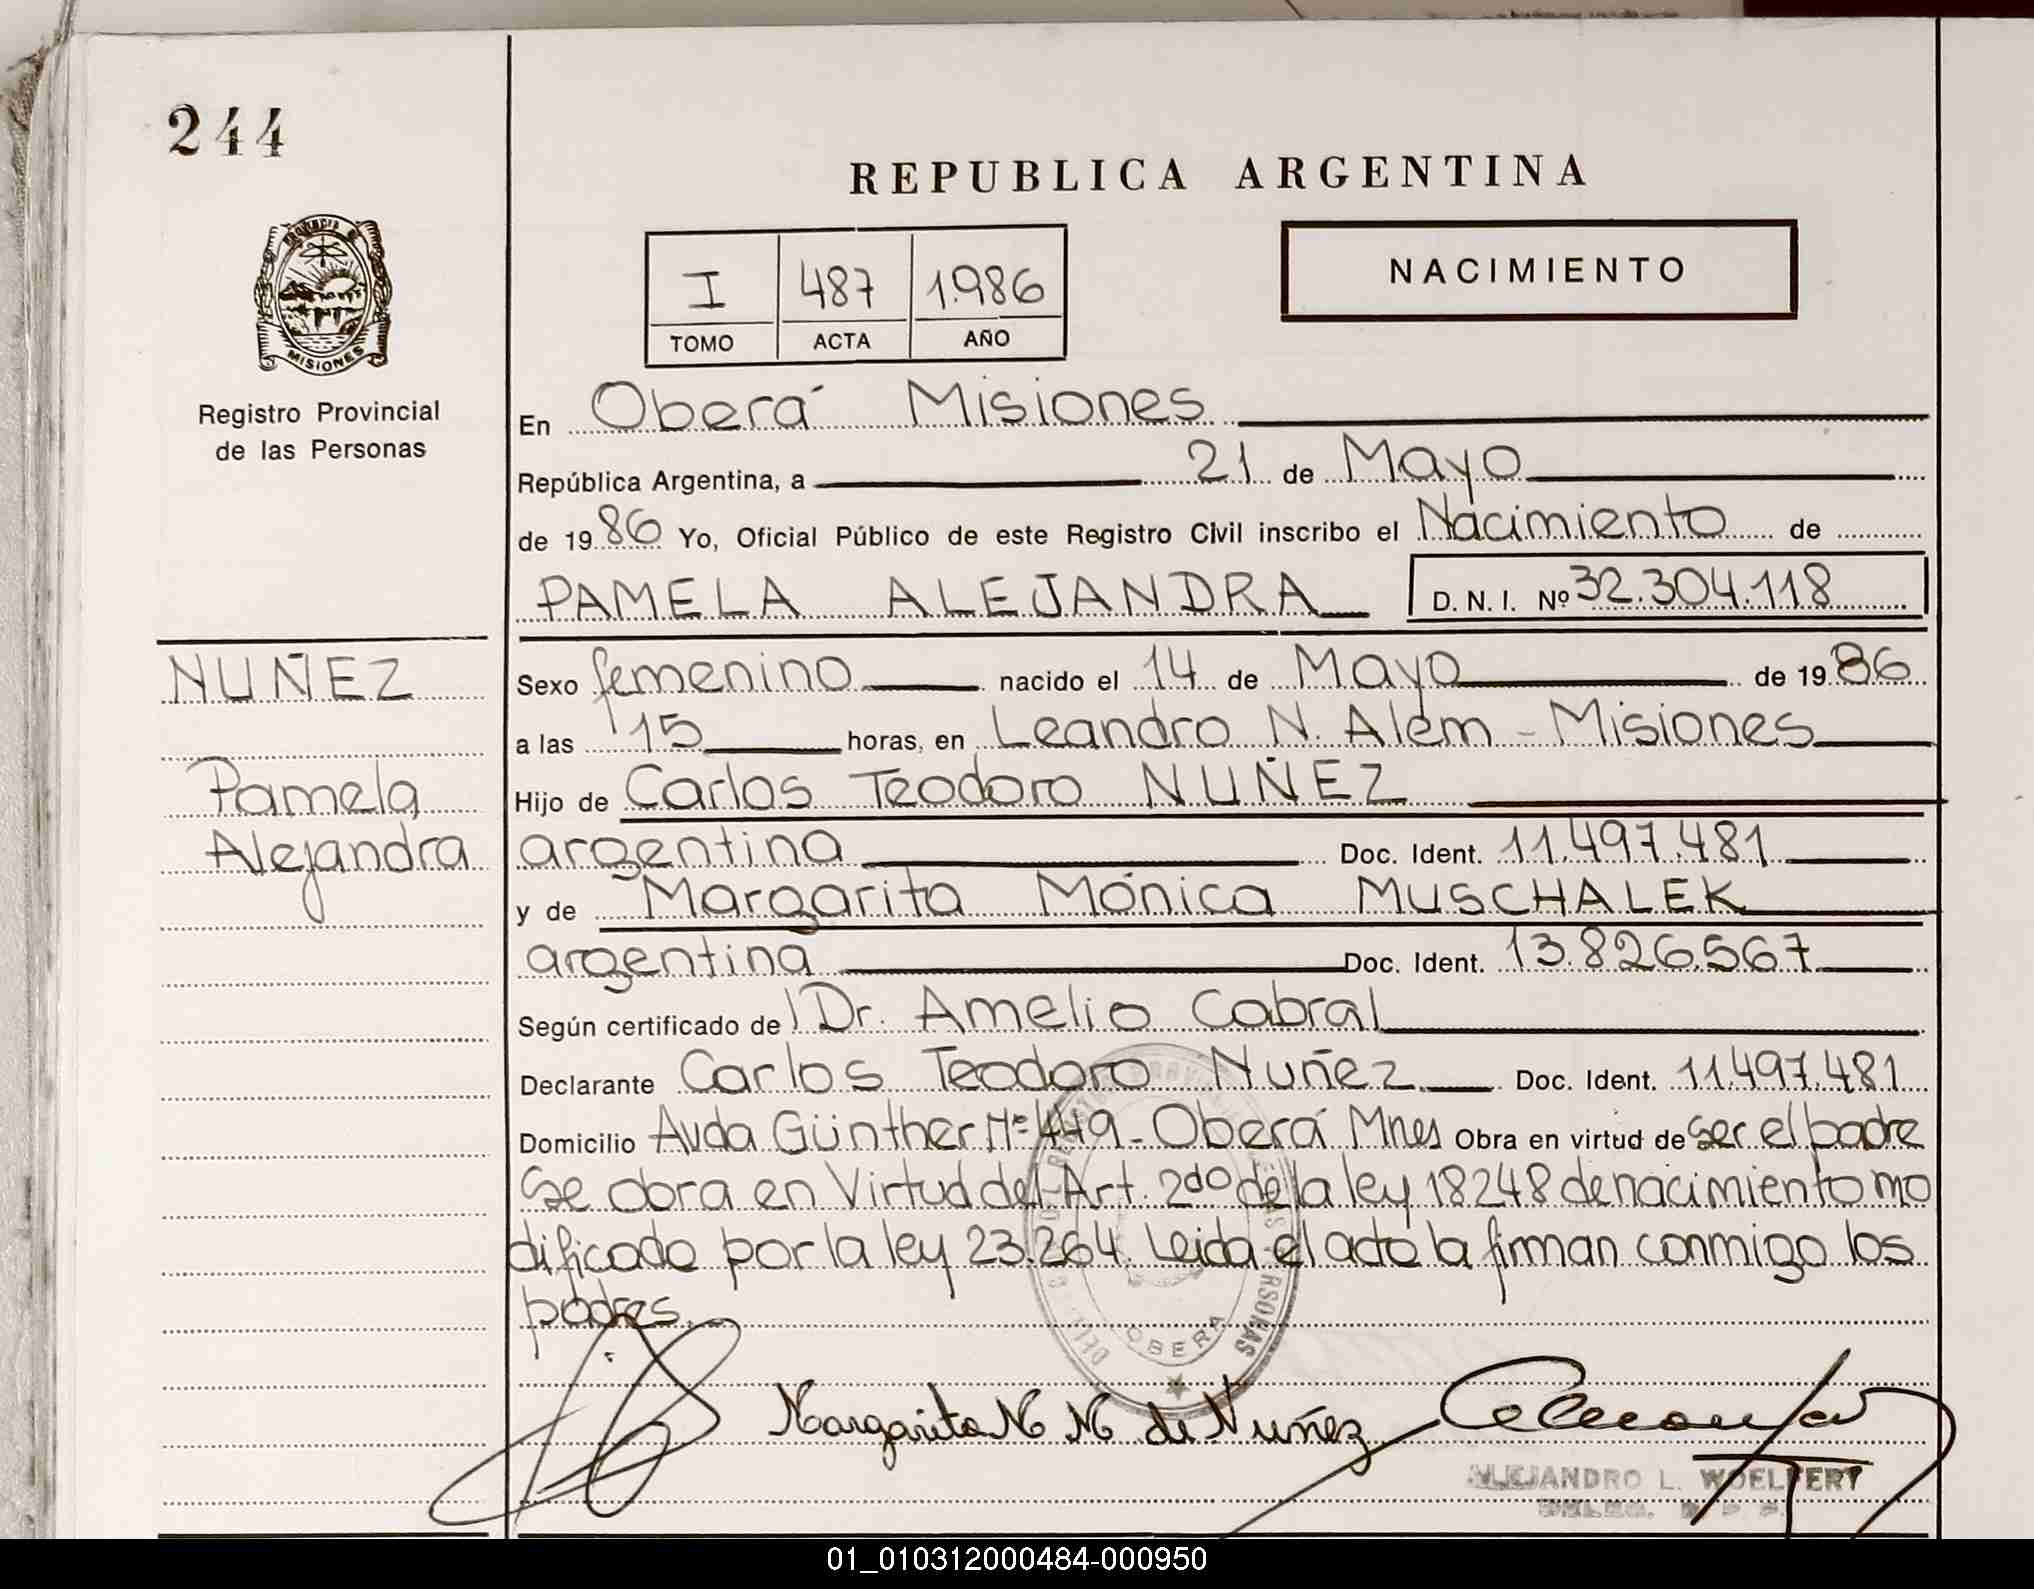 244
REPUBLICA ARGENTINA
I 487 1.986
TOMO ACTA AÑO
NACIMIENTO
MISIONES
Registro Provincial
de las Personas
En Oberá Misiones
República Argentina, a 21 de Mayo
de 1986 Yo, Oficial Público de este Registro Civil inscribo el Nacimiento de
PAMELA ALEJANDRA D. N. I. Nº 32.304.118
NUÑEZ
Pamela
Alejandra
Sexo femenino nacido el 14 de Mayo de 1986
a las 15 horas, en Leandro N. Alem - Misiones
Hijo de Carlos Teodoro NUÑEZ
argentina Doc. Ident. 11.497.481
y de Margarita Mónica MUSCHALEK
argentina Doc. Ident. 13.826.567
Según certificado de Dr. Amelio Cabral
Declarante Carlos Teodoro Nuñez Doc. Ident. 11.497.481
Domicilio Avda Günther Nº 449 - Oberá Mnes Obra en virtud de ser el padre
Se obra en Virtud del Art. 2do de la ley 18248 de nacimiento mo
dificado por la ley 23.264. Leida el acta la firman conmigo los
padres.
OBERA
Margarita M M de Nuñez
ALEJANDRO L. WOELFERT
01_010312000484-000950